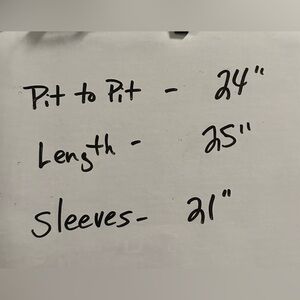 Pit to Pit - 24"
Length - 25"
Sleeves- 21"